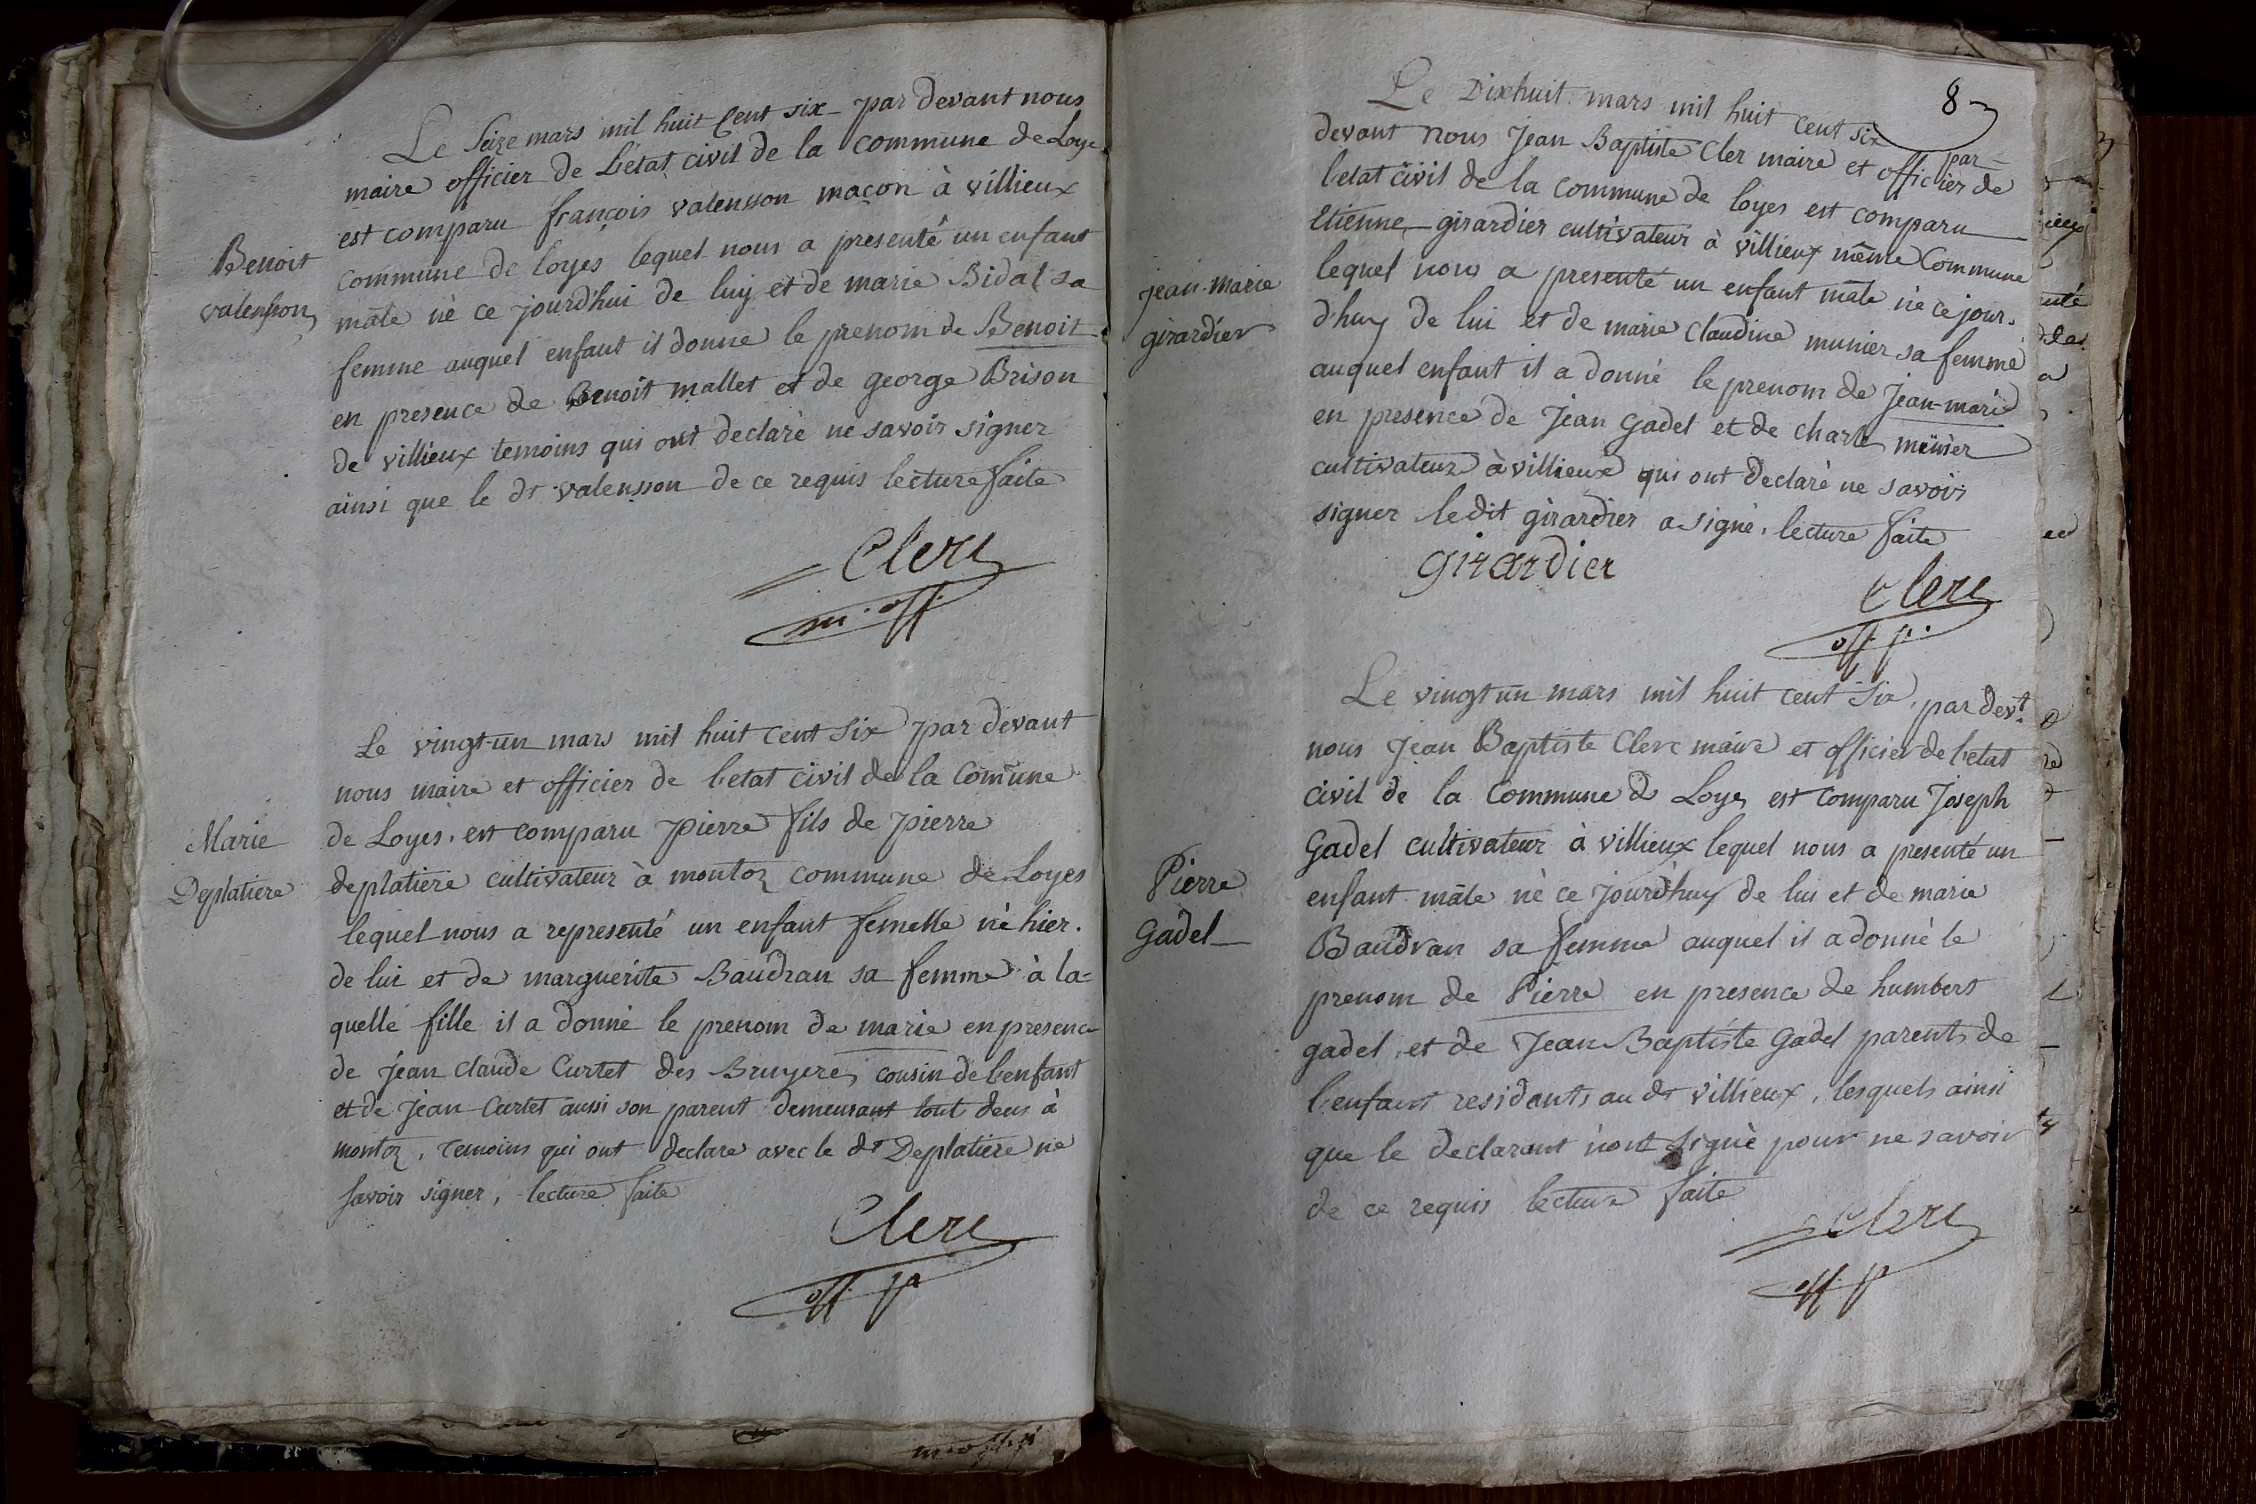 Le Seize mars mil huit Cent six par devant nous
maire officier de L'état civil de la commune de Loye
est comparu françois valensson maçon à villieux
Benoit
valensson
commune de loyes lequel nous a presenté un enfant
male né ce jourd'hui de luy et de marie Bidal sa
femme auquel enfant il donne le prenom de Benoit
en presence de Benoit mallet et de george Brison
de villieux temoins qui ont declaré ne savoir signer
ainsi que le dt valensson de ce requis lecture faite
Clerc
m. off.
Le vingt-un mars mil huit cent six par devant
nous maire et officier de l'etat civil de la Comune
de Loyes. est comparu pierre fils de pierre
Marie
Deplatiere
deplatiere cultivateur à montoz commune de Loyes
lequel nous a representé un enfant femelle né hier.
de lui et de marguerite Baudran sa femme à la-
quelle fille il a donné le prenom de marie en presence
de jean claude Curtet des Bruyeres cousin de l'enfant
et de Jean Curtet aussi son parent demeurant tout deus à
montoz, temoins qui ont declare avec le dt Deplatiere ne
savoir signer, lecture faite
Clerc
off. p
8
Le Dixhuit mars mil huit cent six par-
devant nous Jean Baptiste Cler maire et officier de
l'etat civil de la commune de loyes est comparu
Etienne girardier cultivateur à villieux même Commune
jean marie
girardier
lequel nous a presenté un enfant male né ce jour.
d'huy de lui et de marie Claudine munier sa femme
auquel enfant il a donné le prenom de Jean-marie
en presence de Jean Gadel et de charle munier
cultivateur à villieux qui ont declaré ne savoir
signer le dit girardier a signé. lecture faite
girardier
Clerc
off. p.
Le vingt un mars mil huit cent Six, par devt
nous Jean Baptiste Clerc maire et officier de l'etat
civil de la Commune de Loyes est comparu Joseph
Gadel cultivateur à villieux lequel nous a presenté un
Pierre
Gadel
enfant male né ce jourd'huy de lui et de marie
Baudran sa femme auquel il a donné le
prenom de Pierre en presence de humbert
gadel, et de Jean Baptiste Gadel parents de
l'enfant residents au dt villieux, lesquels ainsi
que le declarant n'ont signé pour ne savoir
de ce requis lecture faite
Clerc
off. p